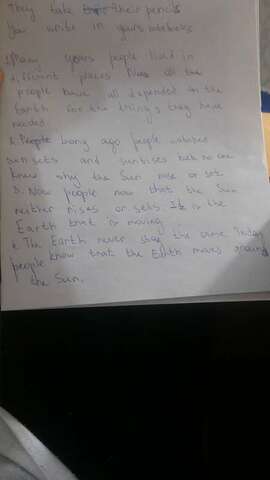 They take their pencils
You write in yours notebooks
1. Many years people lived in
different places
people have all depended on the
Earth for the things they have
needed.
2. People long ago people watched
sunsets and sunrises but no one
knew why the Sun rose or set
3. Now people now that the Sun
neither rises or sets. It is the
Earth that is moving
4. The Earth never stay the same Today
people know that the Earth moves around
the Sun.